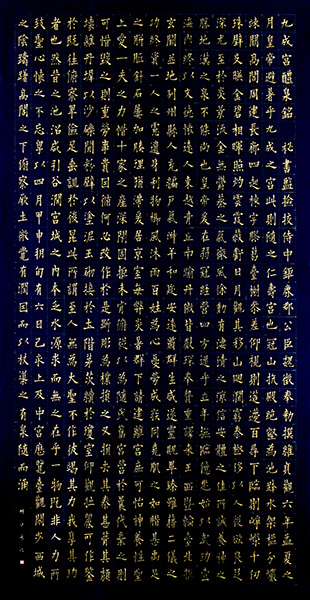 九成宮醴泉銘 秘書監檢校侍中鉅鹿郡公臣魏徵奉勅撰維貞觀六年孟夏之
月皇帝避暑乎九成之宮此則隨之仁壽宮也冠山抗殿絕壑為池跨水架楹分巖
竦闕高閣周建長廊四起棟宇膠葛臺榭參差仰視則迢遰百尋下臨則崢嶸千仞
珠璧交映金碧相暉照灼雲霞蔽虧日月觀其移山迴澗窮泰極侈以人從欲良足
深尤至於炎景流金無鬱蒸之氣微風徐動有淒清之涼信安體之佳所誠養神之
勝地漢之甘泉不能尚也皇帝爰在弱冠經營四方逮乎立年撫臨億兆始以武功壹
海內終以文德懷遠人東越青丘南踰丹徼皆獻琛奉贄重譯來王西暨輪臺北拒
玄闕並地列州縣人充編戶氣淑年和邇安遠肅群生咸遂靈貺畢臻雖藉二儀之
功終資一人之慮遺身利物櫛風沐雨百姓為心憂勞成疾同堯肌之如腊甚禹足
之胼胝針石屢加腠理猶滯爰居京室每弊炎暑群下請建離宮庶可怡神養性聖
上愛一夫之力惜十家之產深閉固拒未肯俯從以為隨氏舊宮營於曩代棄之則
可惜毀之則重勞事貴因循何必改作於是斲彫為樸損之又損去其泰甚葺其頹
壞雜丹墀以沙礫間粉壁以塗泥玉砌接於土階茅茨續於瓊室仰觀壯麗可作鑒
於既往俯察卑儉足垂訓於後昆此所謂至人無為大聖不作彼竭其力我享其功
者也然昔之池沼咸引谷澗宮城之內本乏水源求而無之在乎一物既非人力所
致聖心懷之不忘粵以四月甲申朔旬有六日己亥上及中宮歷覽臺觀閑步西城
之陰躊躇高閣之下俯察厥土微覺有潤因而以杖導之有泉隨而涌